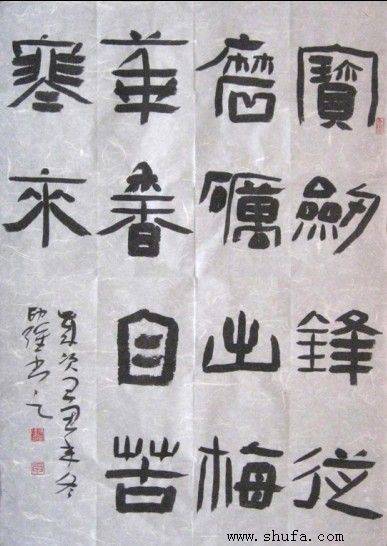 寶劍鋒從
磨礪出梅
華香自苦
寒來
歲次己丑年冬
書之
www.shufa.com